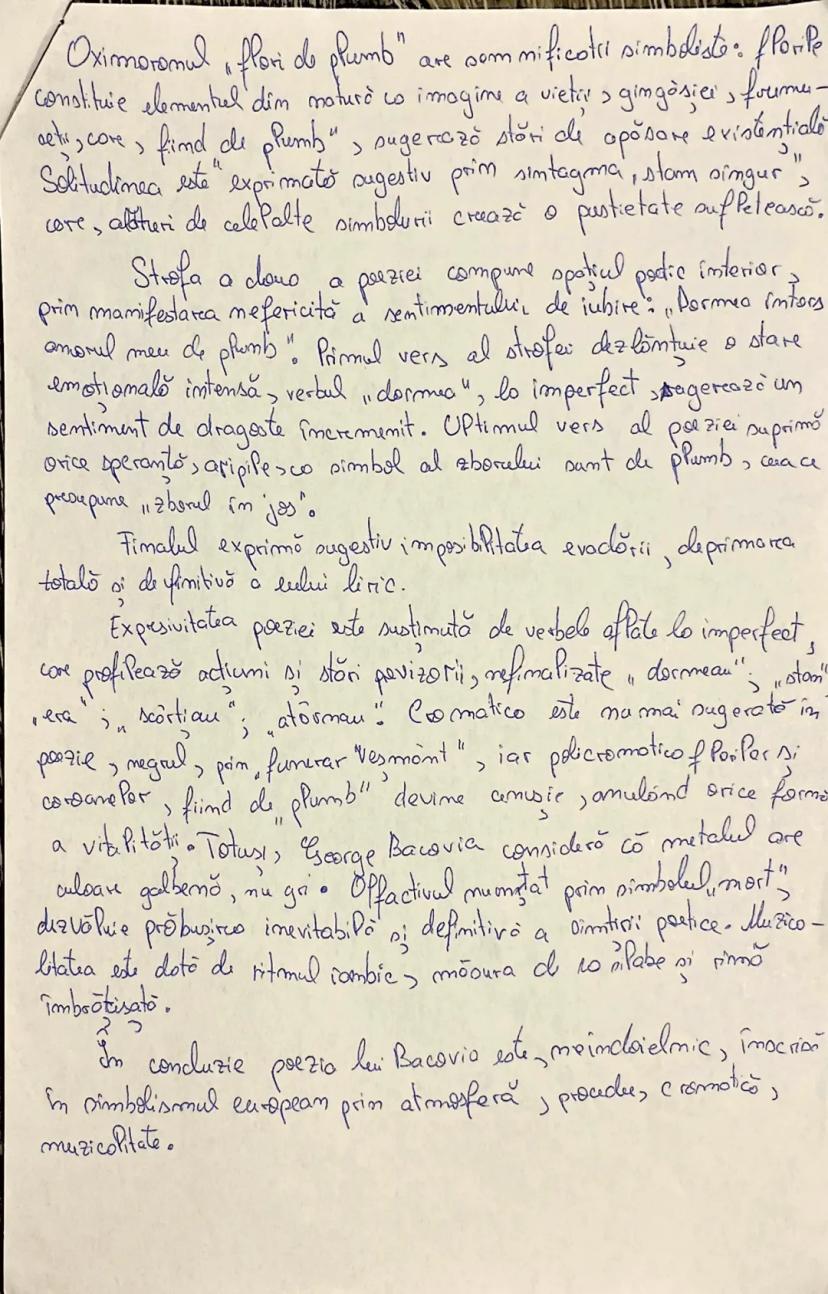 Oximoronul „flori de plumb" are semnificatii simboliste: florile
constituie elementul din natură ca imagine a vieții, gingășiei, frumu-
seții, care, fiind de plumb", sugerează stări de apăsare existențială
Solitudinea este exprimată sugestiv prin sintagma „stam singur",
care, alături de celelalte simboluri crează o pustietate sufletească.
Strofa a doua a poeziei compune spațiul poetic interior,
prin manifestarea nefericită a sentimentului de iubire: „Dormea întors
amorul meu de plumb". Primul vers al strofei dezlănțuie o stare
emoțională intensă, verbul „dormea", la imperfect, sugerează un
sentiment de dragoste încremenit. Ultimul vers al poeziei suprimă
orice speranță, aripile, ca simbol al zborului sunt de plumb, ceea ce
presupune „zborul în jos".
Finalul exprimă sugestiv imposibilitatea evadării, deprimarea
totală și definitivă a eului liric.
Expresivitatea poeziei este susținută de verbele aflate la imperfect,
care profilează acțiuni și stări povizorii, nefinalizate „dormeau"; „stam"
„era"; „scârțiau"; „atârnau". Cromatica este numai sugerată în
poezie, negrul, prin „funerar vesmânt", iar policromatica florilor și
coroanelor, fiind de „plumb" devine cenușie, anulând orice formă
a vitalității. Totuși, George Bacovia consideră că metalul are
culoare galbenă, nu gri. Olfactivul nuanțat prin simbolul „mort",
dezvăluie prăbușirea inevitabilă și definitivă a simțirii poetice. Muzica-
litatea este dată de ritmul iambic, măsura de 10 silabe și rimă
îmbrățișată.
În concluzie poezia lui Bacovia este, neîndoielnic, înscrisă
în simbolismul european prin atmosferă, procedee, cromatică,
muzicalitate.